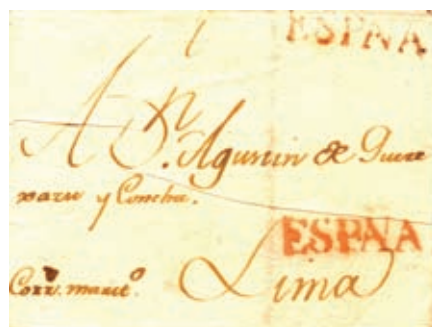 ESPAÑA
A Dn. Agustin de Quere
xazu y Concha.
ESPAÑA
Lima
Corr. marit.o